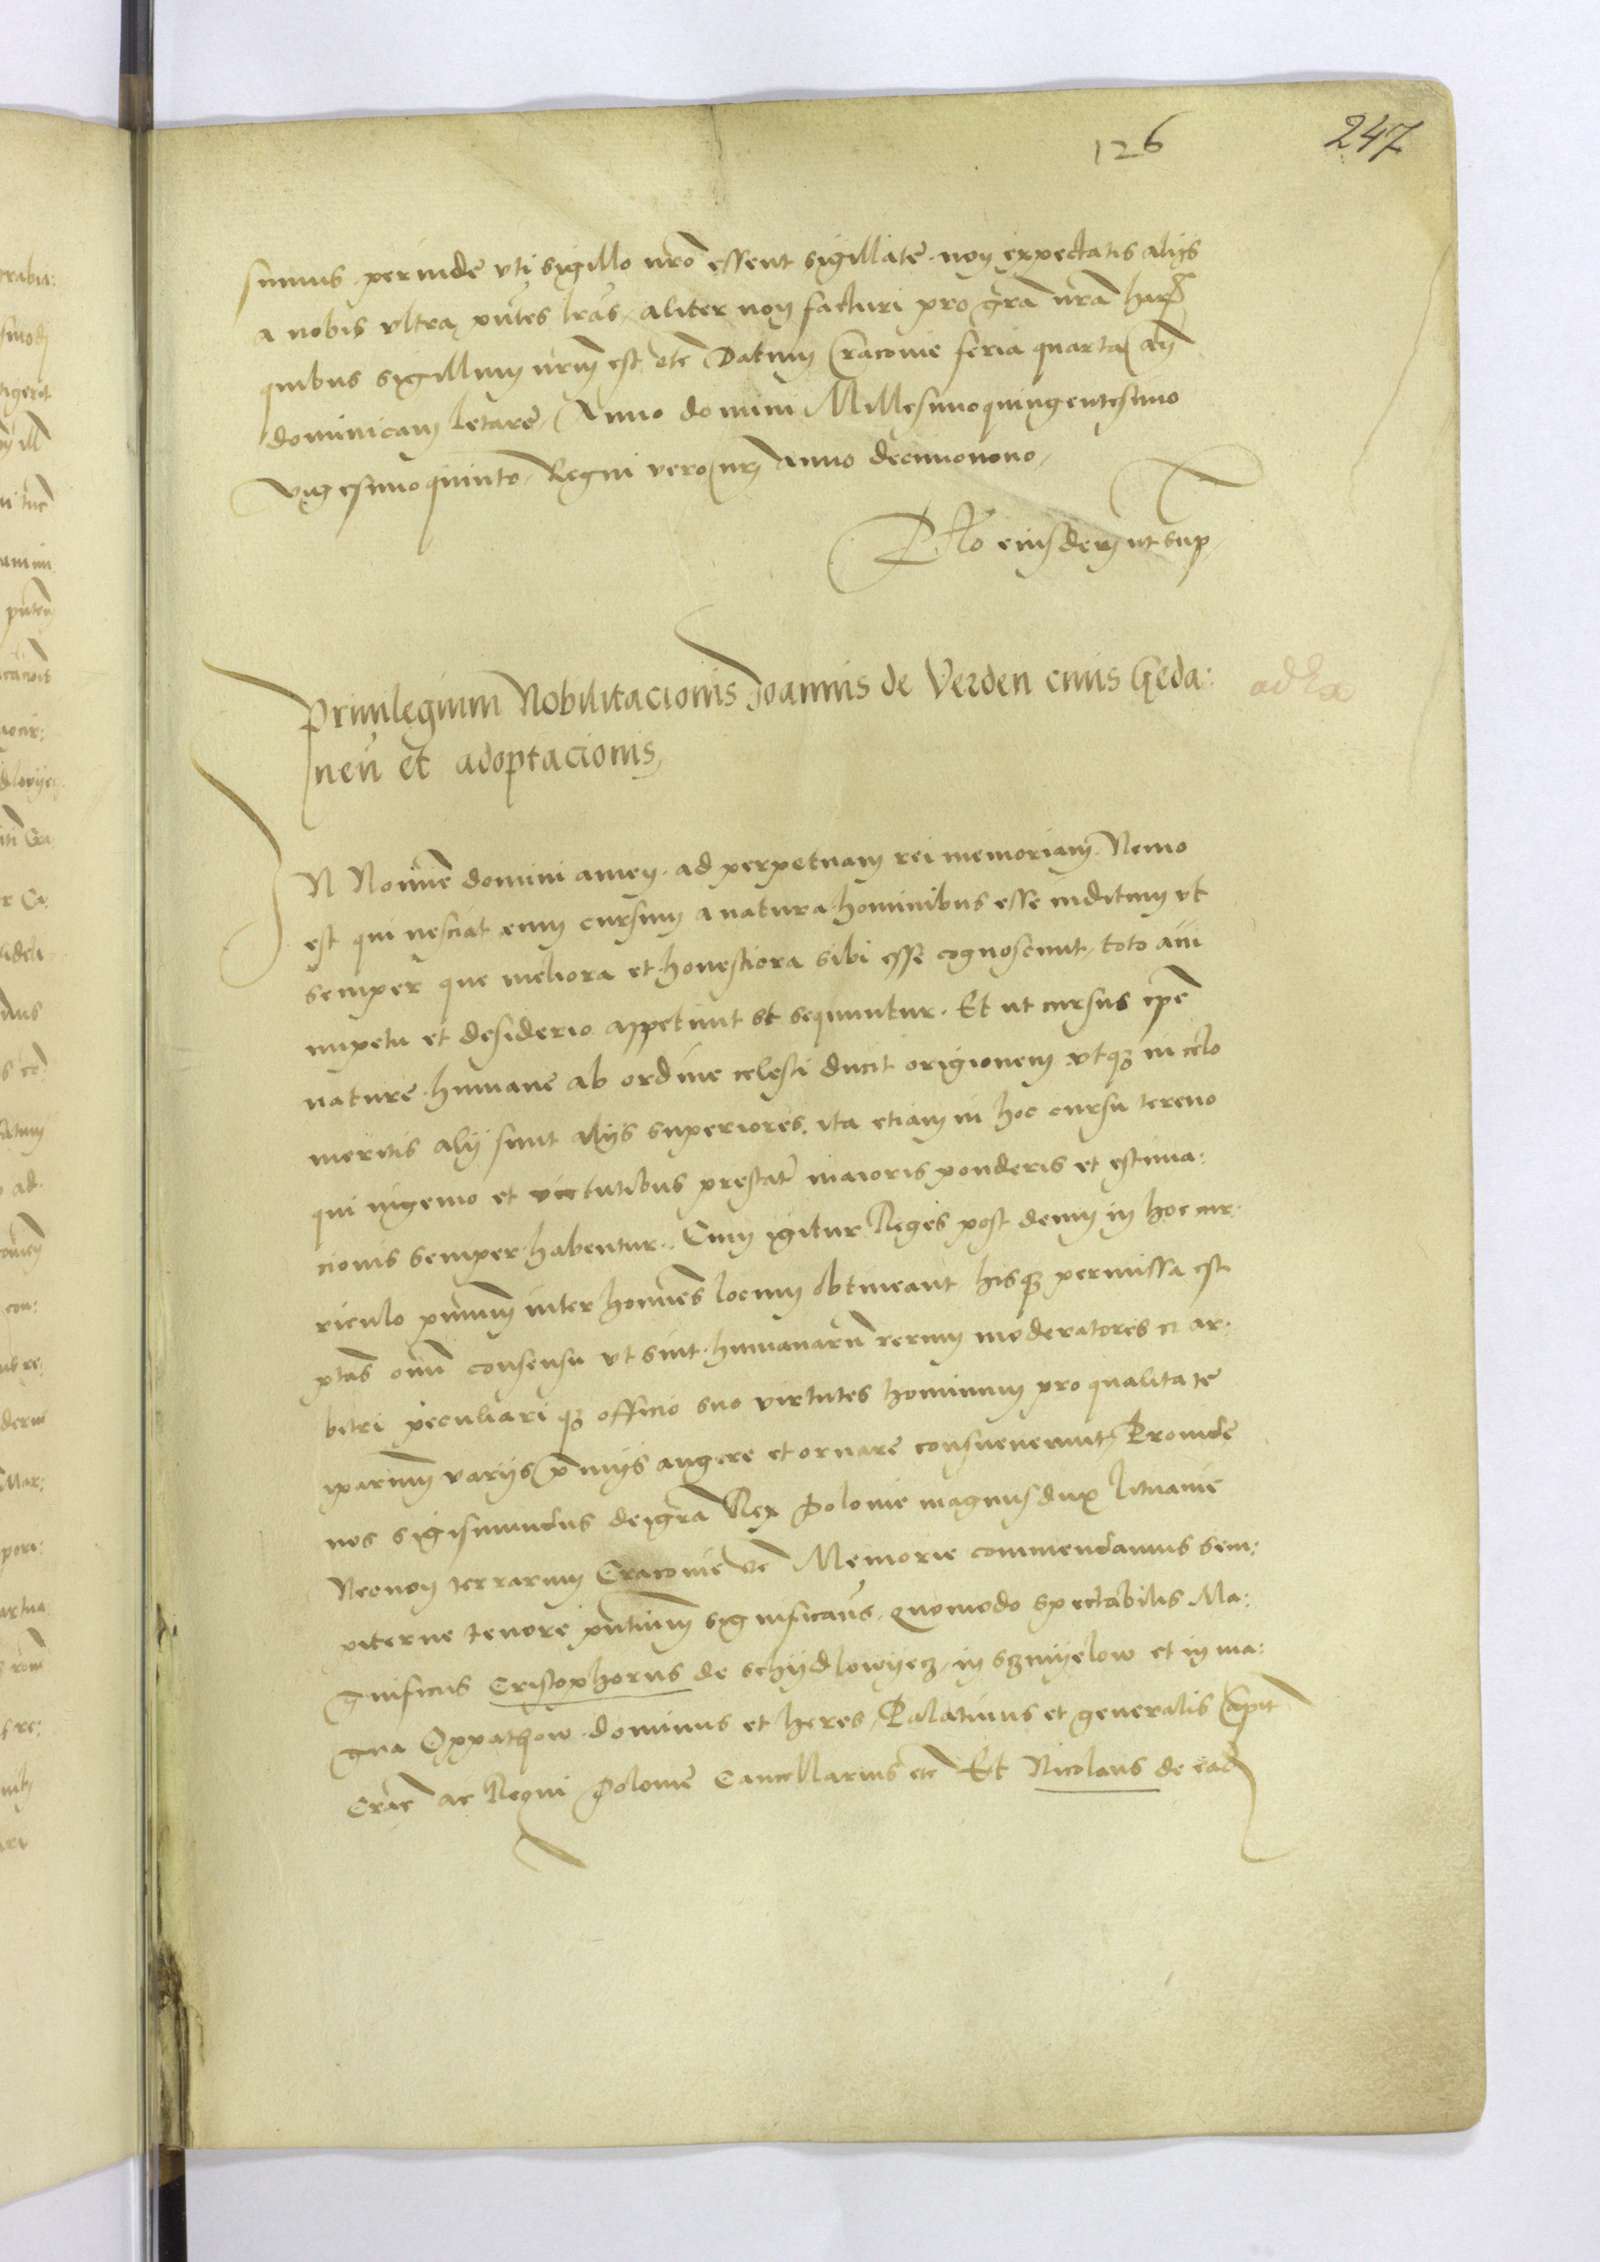 126
247
simus perinde vti sigillo nro essent sigillate non expectatis alijs
a nobis vltra pntes lras aliter non facturi pro gra nra harz
quibus sigillum nrm est etc Datum Cracovie feria quarta an
dominicam letare, Anno domini Millesimoquingentesimo
vigesimoquinto, Regni vero nri anno decimonono,
Rlo eiusdem ut sup,
Privilegium Nobilitacionis Joannis de Verden civis Geda:
nen et adoptacionis,
IN Nomine domini amen. ad perpetuam rei memoriam. Nemo
est qui nesciat eum cursum a natura hominibus esse inditum vt
semper que meliora et honestiora sibi esse cognoscunt, toto aiu
impetu et desiderio appetunt et sequuntur. Et ut cursus ipse
nature humane ab ordine celesti ducit origionem vtq3 in celo
meritis alij sunt alijs superiores. ita etiam in hoc cursu tereno
qui ingenio et virtutibus prestant maioris ponderis et estima:
cionis semper habentur. Cum igitur Reges post deum in hoc cur:
riculo primum inter homines locum obtineant hisq3 permissa est
ptas omi consensu vt sint humanaru rerum moderatores et ar:
bitri peculiari q3 officio suo virtutes hominum pro qualitate
iparum varijs pmijs augere et ornare consueuerunt, Proinde
nos Sigismundus dei gra Rex Polonie magnus dux Lituanie
Necnon terrarum Cracovie etc Memorie commendamus sem:
piterne tenore pntium significans, quomodo spectabilis Ma:
gnificus Cristophorus de Schijdlowijecz, in Szmijelow et in ma:
gna Oppathow dominus et heres, Palatinus et generalis Capit
Crac ac Regni Polonie Cancellarius etc Et Nicolaus de ead